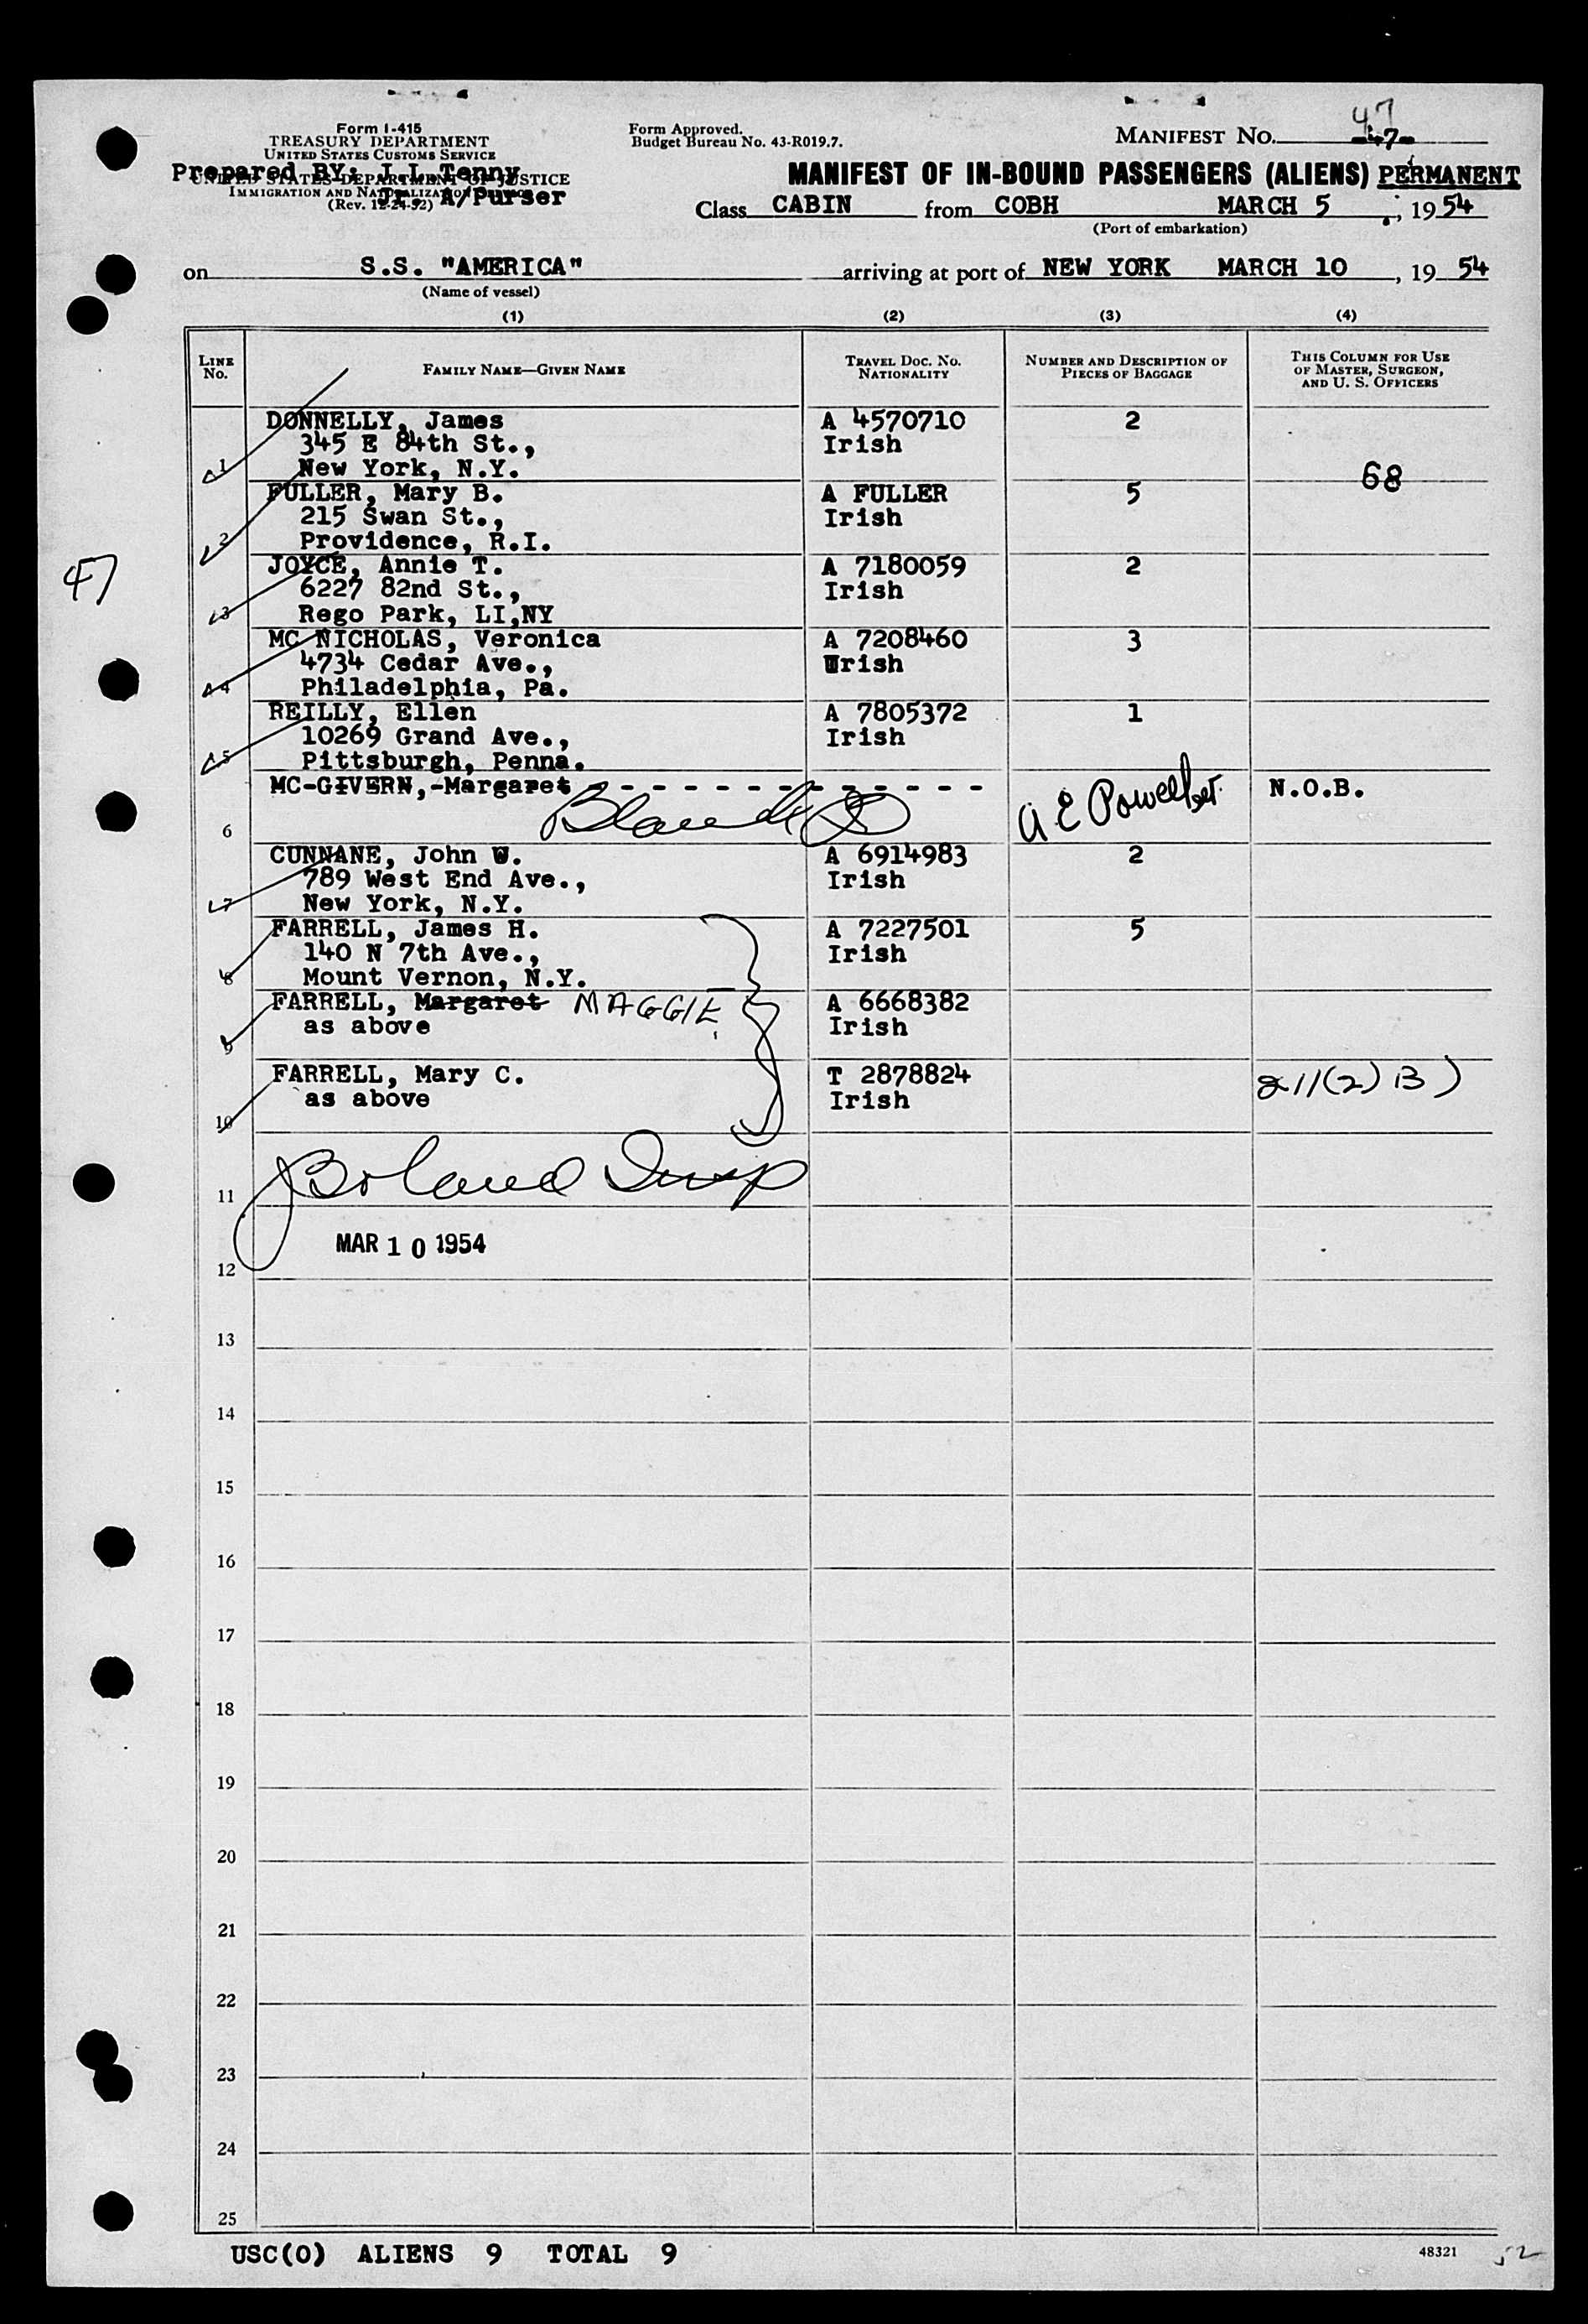 Form I-415
TREASURY DEPARTMENT
UNITED STATES CUSTOMS SERVICE
Prepared BY: J.L.Tenny
UNITED STATES DEPARTMENT OF JUSTICE
IMMIGRATION AND NATURALIZATION SERVICE
Jr. A/Purser
(Rev. 12-24-52)
Form Approved.
Budget Bureau No. 43-R019.7.
47
MANIFEST NO. 47
MANIFEST OF IN-BOUND PASSENGERS (ALIENS) PERMANENT
Class CABIN from COBH MARCH 5, 1954
(Port of embarkation)
on S.S. "AMERICA" arriving at port of NEW YORK MARCH 10, 19 54
(Name of vessel)
(1) (2) (3) (4)
LINE NO. FAMILY NAME—GIVEN NAME TRAVEL DOC. NO. NATIONALITY NUMBER AND DESCRIPTION OF PIECES OF BAGGAGE THIS COLUMN FOR USE OF MASTER, SURGEON, AND U. S. OFFICERS
DONNELLY, James A 4570710 2
345 E 84th St., Irish
1 New York, N.Y. 68
FULLER, Mary B. A FULLER 5
215 Swan St., Irish
2 Providence, R.I.
47
JOYCE, Annie T. A 7180059 2
6227 82nd St., Irish
3 Rego Park, LI,NY
MC NICHOLAS, Veronica A 7208460 3
4734 Cedar Ave., Irish
4 Philadelphia, Pa.
REILLY, Ellen A 7805372 1
10269 Grand Ave., Irish
5 Pittsburgh, Penna.
MC-GIVERN,-Margaret - - - - - - - - - - - - - - - N.O.B.
6 A E Powell
CUNNANE, John W. A 6914983 2
789 West End Ave., Irish
7 New York, N.Y.
FARRELL, James H. A 7227501 5
140 N 7th Ave., Irish
8 Mount Vernon, N.Y.
FARRELL, Margaret MAGGIE A 6668382
as above Irish
9
FARRELL, Mary C. T 2878824 211(2)B)
as above Irish
10
Boland Insp
11
MAR 10 1954
12
13
14
15
16
17
18
19
20
21
22
23
24
25
USC(0) ALIENS 9 TOTAL 9
48321 52